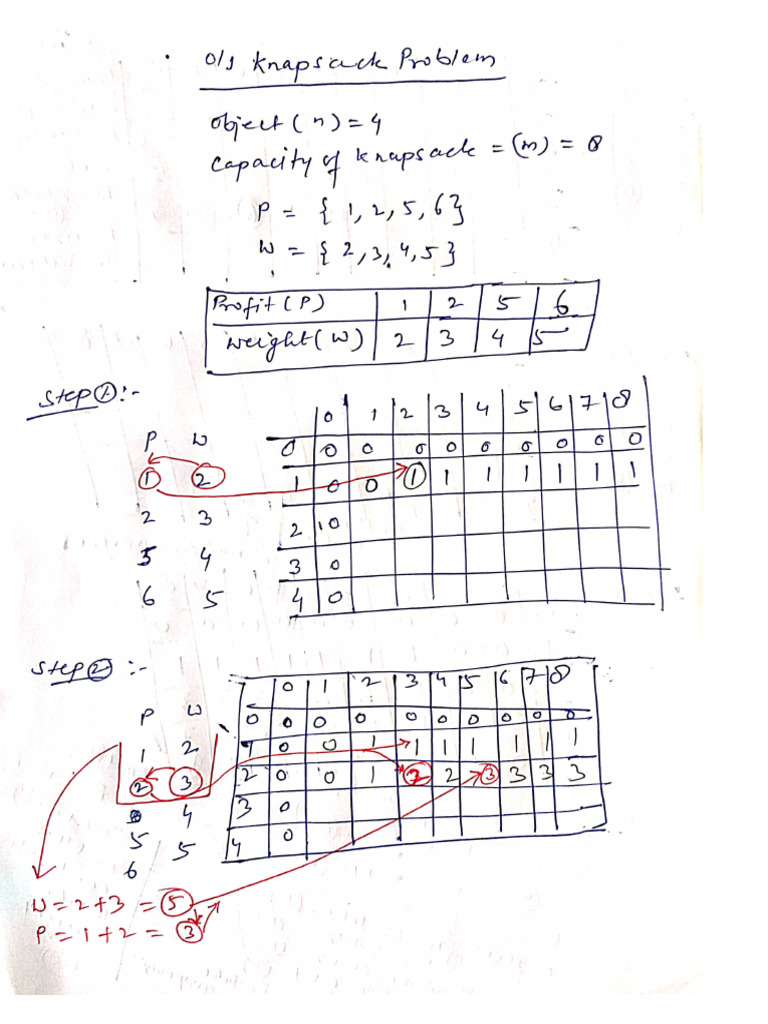 0/1 Knapsack Problem
object (n) = 4
capacity of knapsack = (m) = 8
P = { 1, 2, 5, 6}
W = { 2, 3, 4, 5}
Profit (P) 1 2 5 6
weight (W) 2 3 4 5
Step ① :-
0 1 2 3 4 5 6 7 8
P W 0 0 0 0 0 0 0 0 0 0
1 2 1 0 0 1 1 1 1 1 1 1
2 3 2 0
5 4 3 0
6 5 4 0
Step ② :-
0 1 2 3 4 5 6 7 8
P W 0 0 0 0 0 0 0 0 0 0
1 2 1 0 0 1 1 1 1 1 1 1
2 3 2 0 0 1 2 2 3 3 3 3
4 3 0
5 5 4 0
6
W = 2 + 3 = 5
P = 1 + 2 = 3